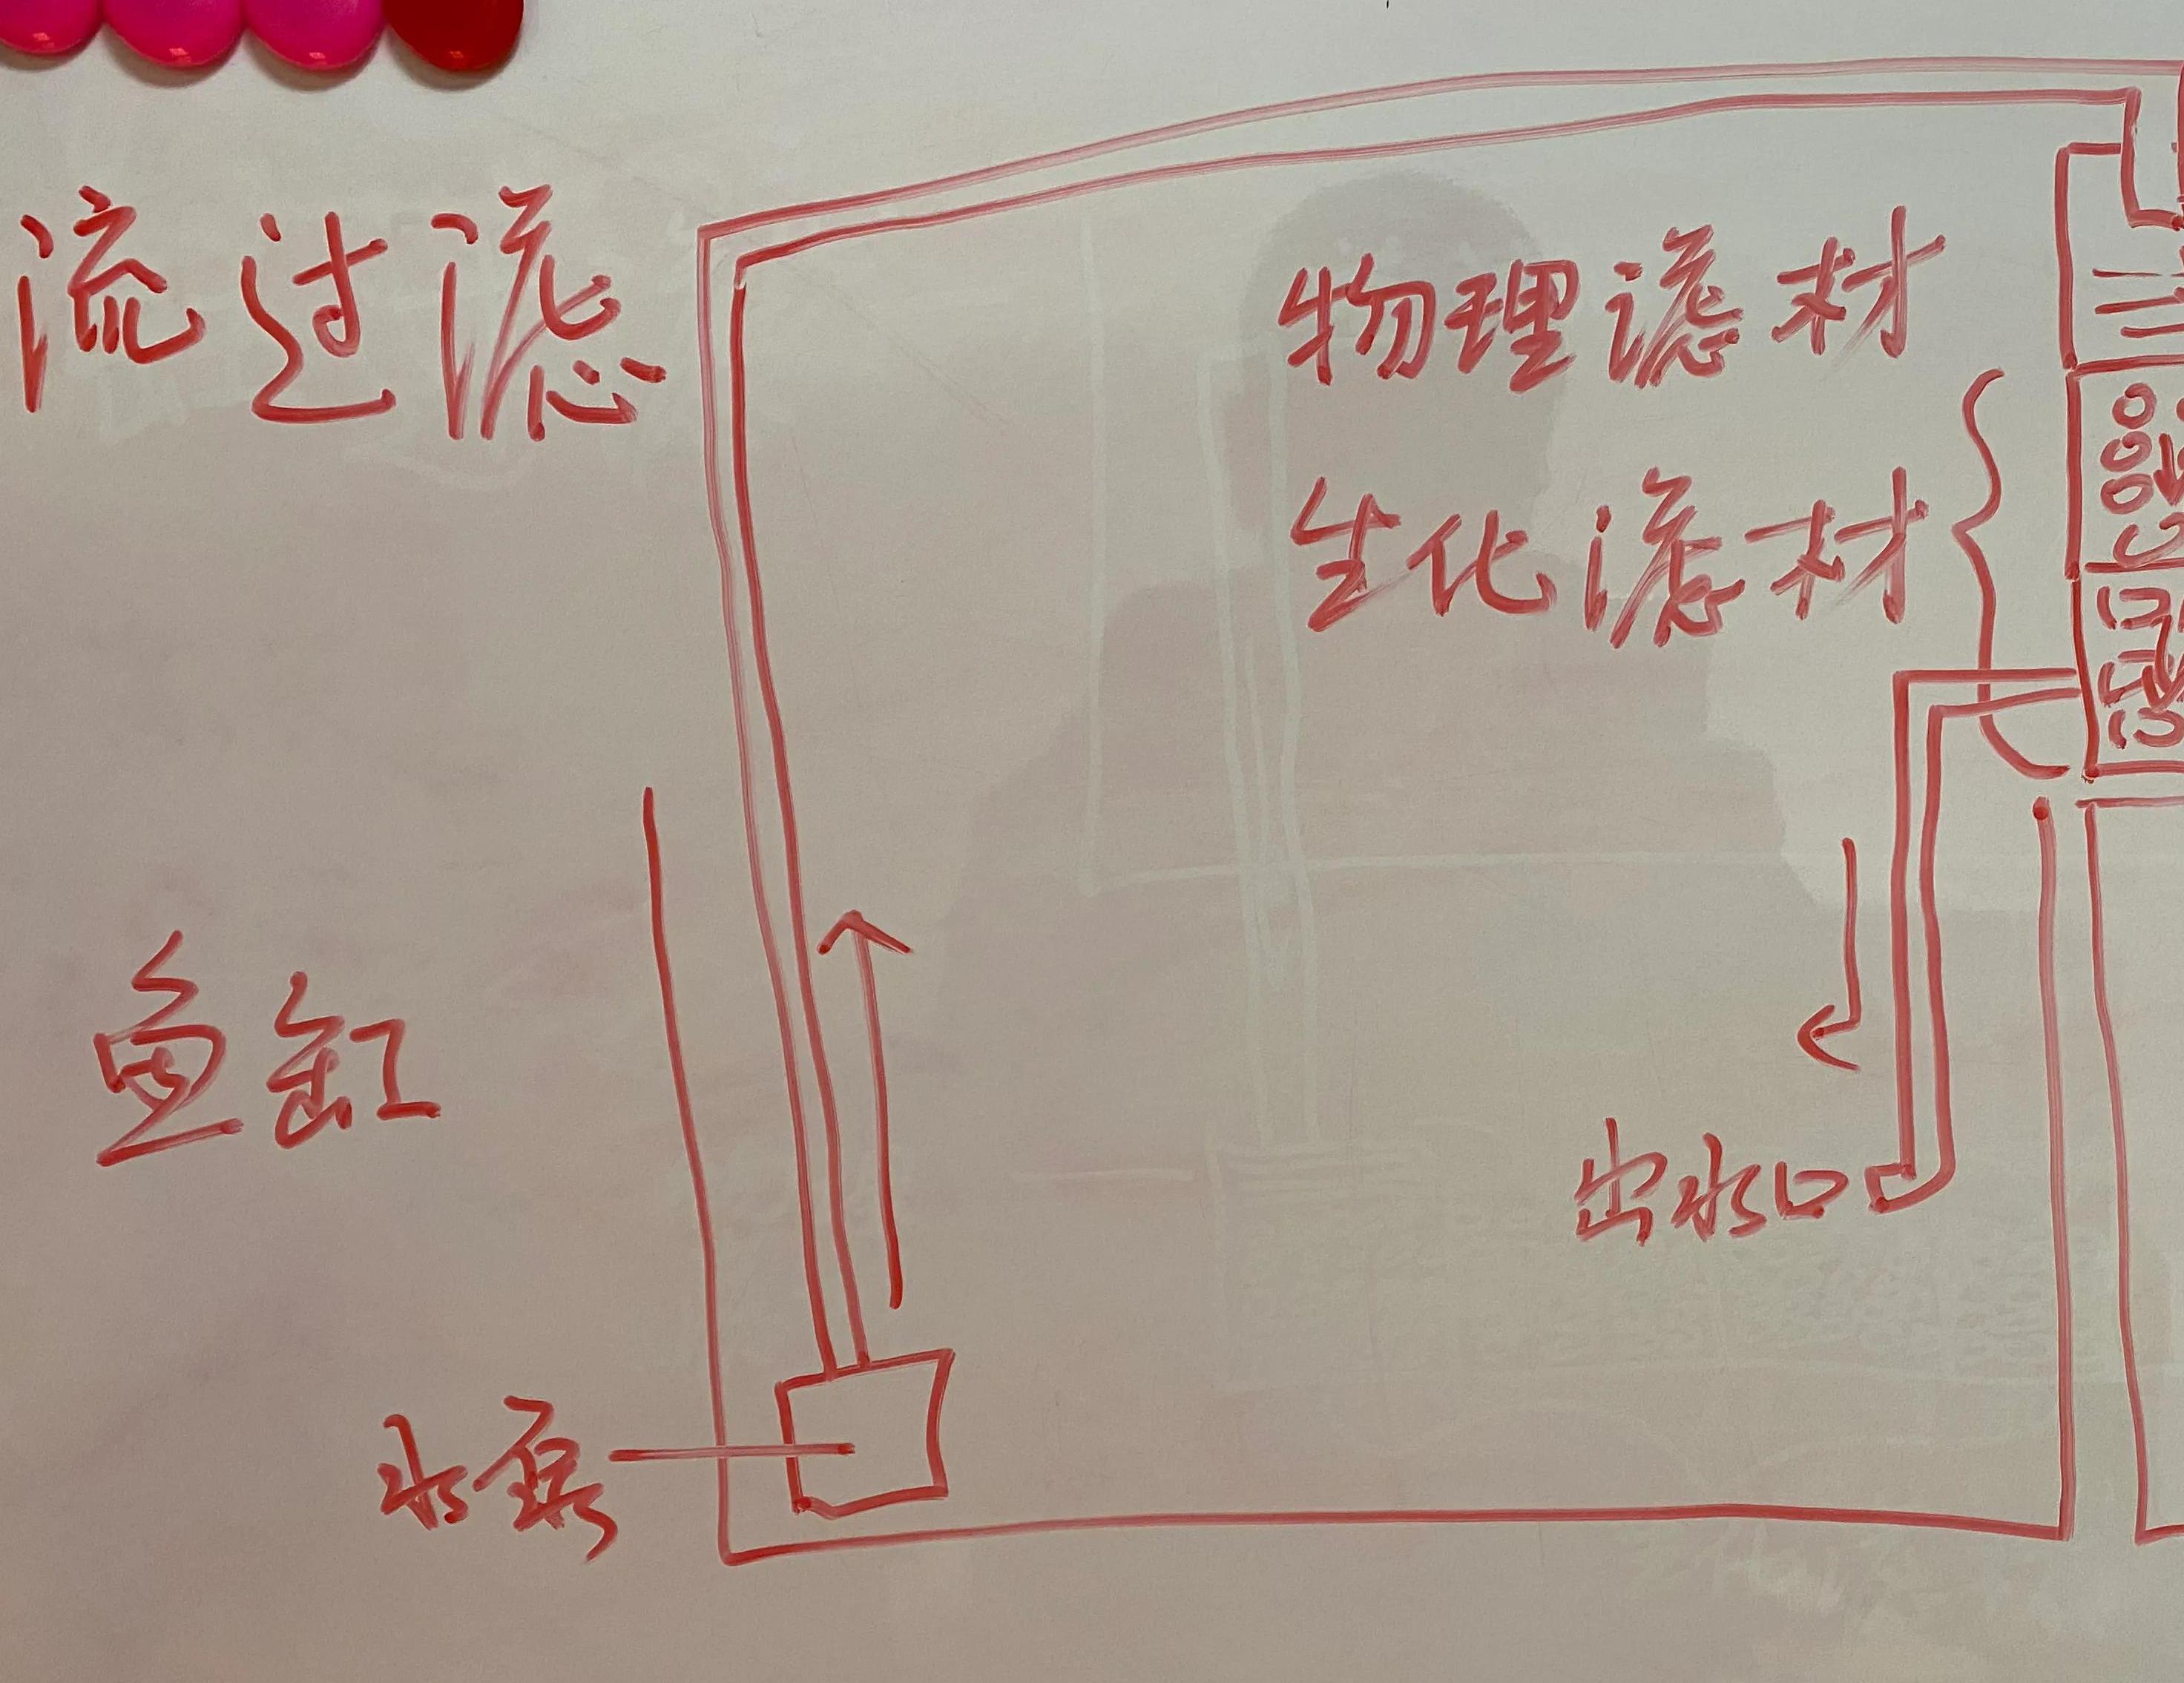 流过滤
物理滤材
生化滤材
鱼缸
出水口
水泵